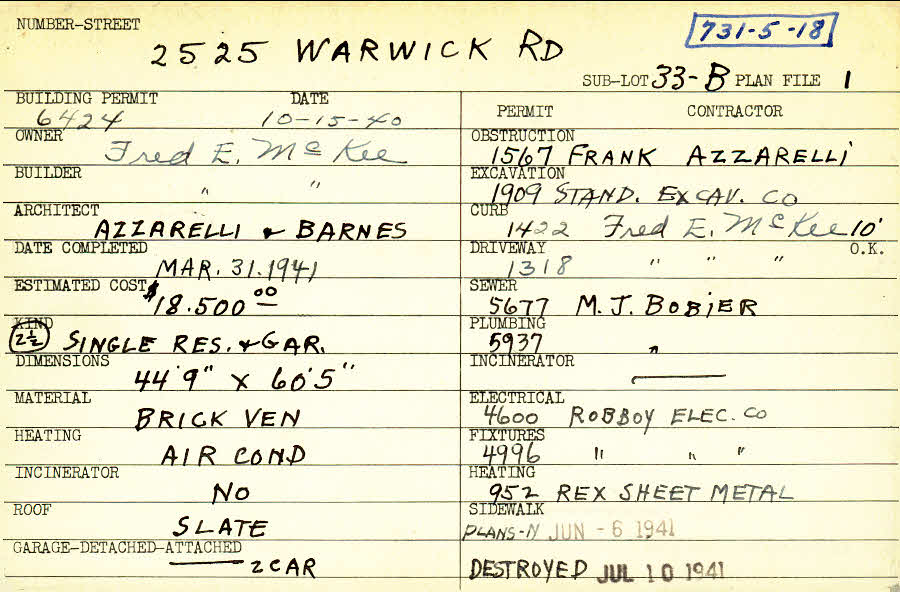 NUMBER-STREET
2525 WARWICK RD
731-5-18
SUB-LOT 33-B PLAN FILE 1
BUILDING PERMIT DATE
6424 10-15-40
OWNER
Fred E. McKee
BUILDER
" "
ARCHITECT
AZZARELLI & BARNES
DATE COMPLETED
MAR. 31. 1941
ESTIMATED COST
$18.500 00
KIND
2½ SINGLE RES. & GAR.
DIMENSIONS
44'9" X 60'5"
MATERIAL
BRICK VEN
HEATING
AIR COND
INCINERATOR
NO
ROOF
SLATE
GARAGE-DETACHED-ATTACHED
2 CAR
PERMIT CONTRACTOR
OBSTRUCTION
1567 FRANK AZZARELLI
EXCAVATION
1909 STAND. EXCAV. CO
CURB
1422 Fred E. McKee 10'
DRIVEWAY O.K.
1318 " " "
SEWER
5677 M. J. BOBIER
PLUMBING
5937 "
INCINERATOR
ELECTRICAL
4600 ROBBOY ELEC. CO
FIXTURES
4996 " " "
HEATING
952 REX SHEET METAL
SIDEWALK
PLANS-N JUN - 6 1941
DESTROYED JUL 10 1941